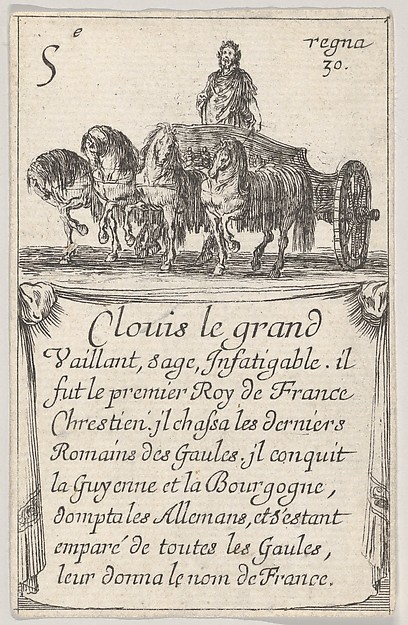 Se
regna
30.
Clouis le grand
Vaillant, sage, Infatigable. il
fut le premier Roy de France
Chrestien. jl chaſsa les derniers
Romains des Gaules. jl conquit
la Guyenne et la Bourgogne,
dompta les Allemans, et s'estant
emparé de toutes les Gaules,
leur donna le nom de France.